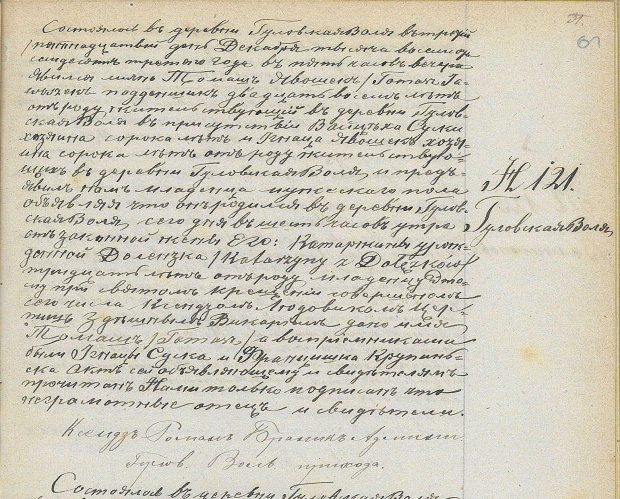 Состоялось въ деревни Гуловская Воля въ третій
/пятнадцатый день Декабря тысяча восемьсотъ
семдесятъ третего года въ пять часовъ вечера
явился лично Томашъ Явошекъ /Tomasz Ja-
woszek подденщикъ двадцать восемь лѣтъ
отъ роду жительствующій въ деревни Гулов-
ская Воля въ присутствіи Войцѣха Суски
хозяина сорока лѣтъ и Игнаца Явошекъ хозя-
ина сорока лѣтъ отъ роду жительствую-
щихъ въ деревни Гуловская Воля, и предъ-
явилъ намъ младенца мужескаго пола
объявляя что онъ родился въ деревни Гулов-
ская Воля, сего дня въ шесть часовъ утра
отъ законной жены Его: Катаржины урож-
денной /Katarzyny z
тридцать лѣтъ отъ роду, младенцу Это-
при святомъ крещеніи совершенномъ
сего числа Ксендзомъ Людовикомъ
Здѣшнымъ Викаріемъ дано имя
Томашъ /Tomasz/, а воспріемниками
были Игнацы Суска и Францишка Крупинь-
ска Актъ сей объявляющему и свидѣтелямъ
прочитанъ Нами только подписанъ ибо
неграмотные отецъ и свидѣтели.
Ксендзъ Романъ
Гулов. Воль. прихода.
Состоялось въ деревни Гуловская Воля
№ 121.
Гуловская Воля